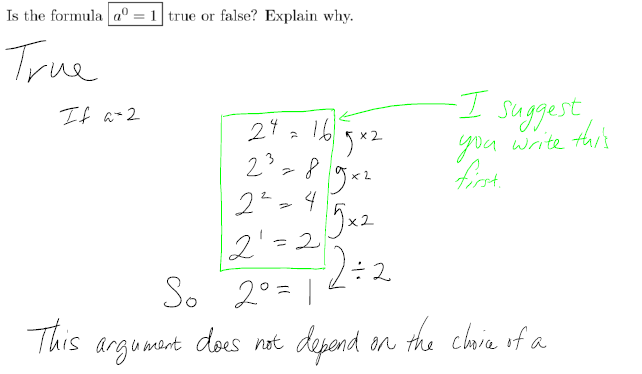 Is the formula a⁰ = 1 true or false? Explain why.
True
If a=2
2⁴ = 16
×2
2³ = 8
×2
2² = 4
×2
2¹ = 2
÷2
So 2⁰ = 1
I suggest
you write this
first.
This argument does not depend on the choice of a